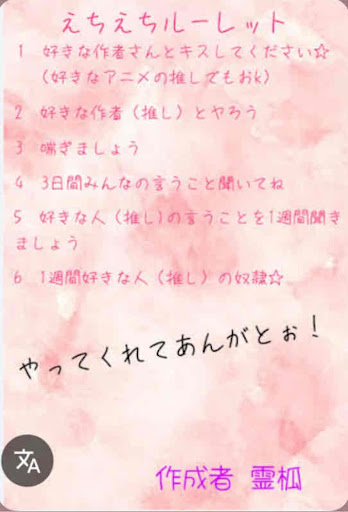 えちえちルーレット
1 好きな作者さんとキスしてください☆
(好きなアニメの推しでもおk)
2 好きな作者（推し）とヤろう
3 喘ぎましょう
4 3日間みんなの言うこと聞いてね
5 好きな人（推し)の言うことを1週間聞き
ましょう
6 1週間好きな人（推し）の奴隷☆
やってくれてあんがとぉ！
文A
作成者 霊枛